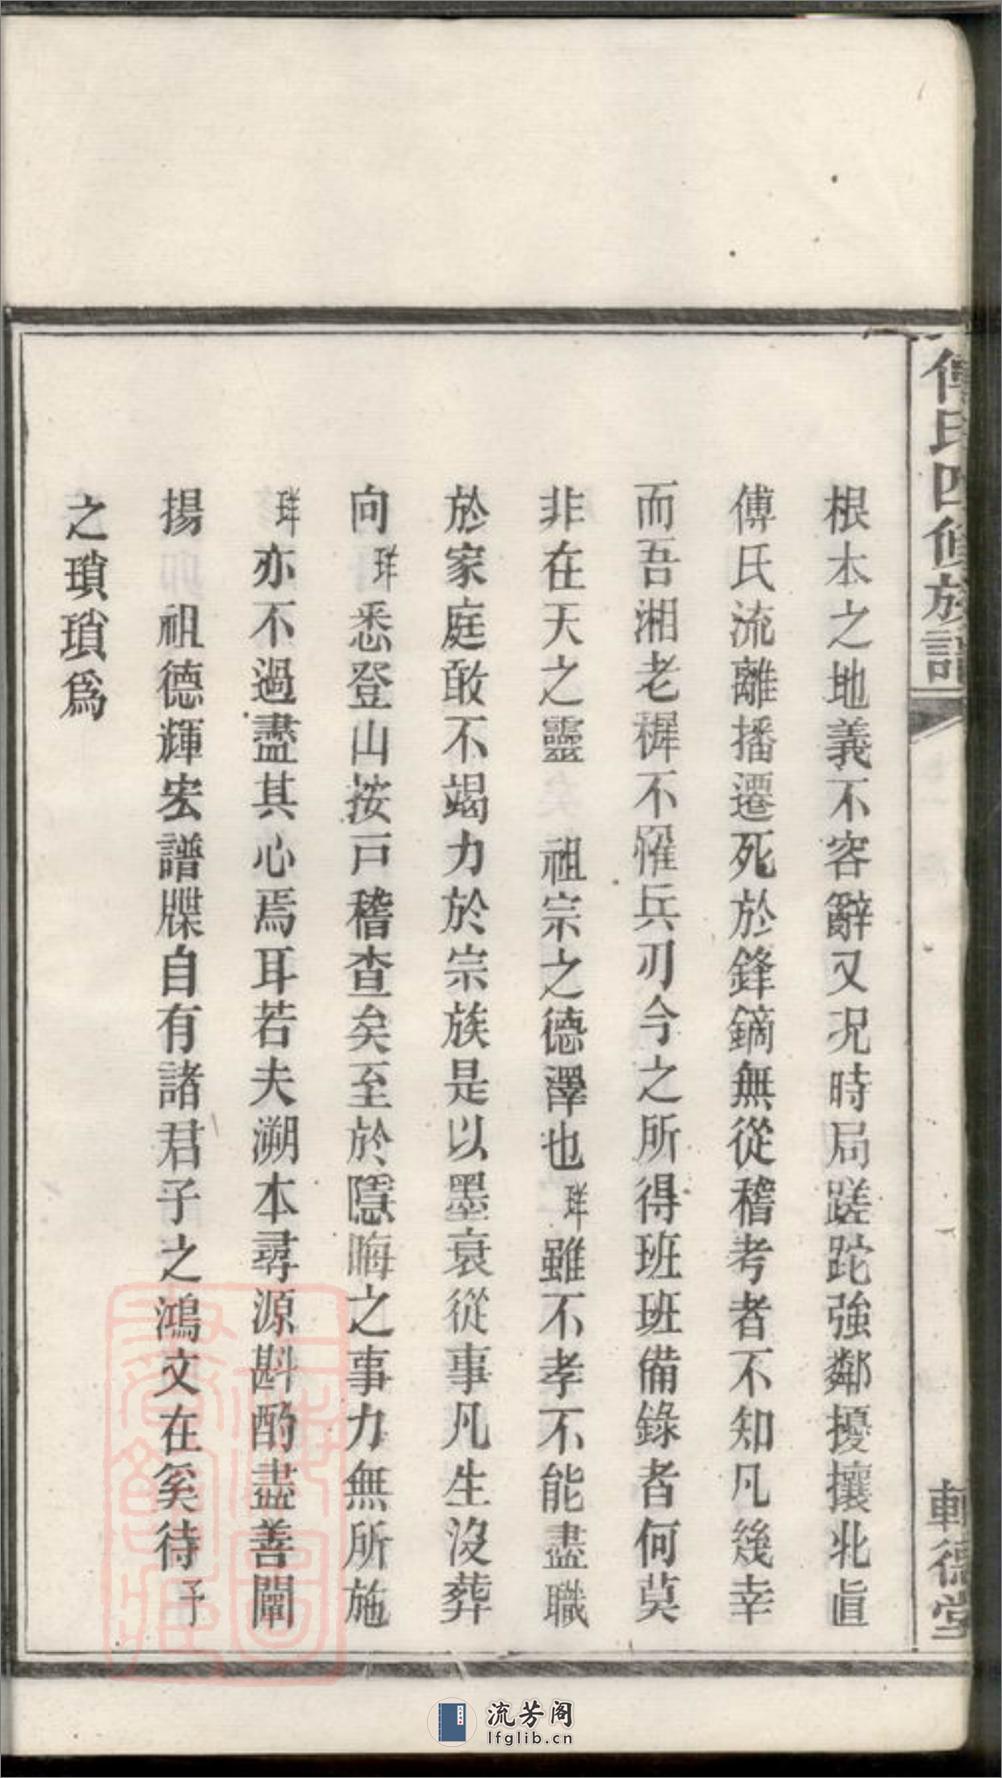 傅氏四修族譜
軒德堂
根本之地義不容辭又况時局蹉跎強鄰擾攘北直
傅氏流離播遷死於鋒鏑無從稽考者不知凡幾幸
而吾湘老穉不罹兵刃今之所得班班備錄者何莫
非在天之靈 祖宗之德澤也㺹雖不孝不能盡職
於家庭敢不竭力於宗族是以墨衰從事凡生沒葬
向㺹悉登山按戸稽查矣至於隱晦之事力無所施
㺹亦不過盡其心焉耳若夫溯本尋源斟酌盡善闡
揚 祖德輝宏譜牒自有諸君子之鴻文在奚待予
之瑣瑣爲
上海圖書館藏
流芳阁
lfglib.cn